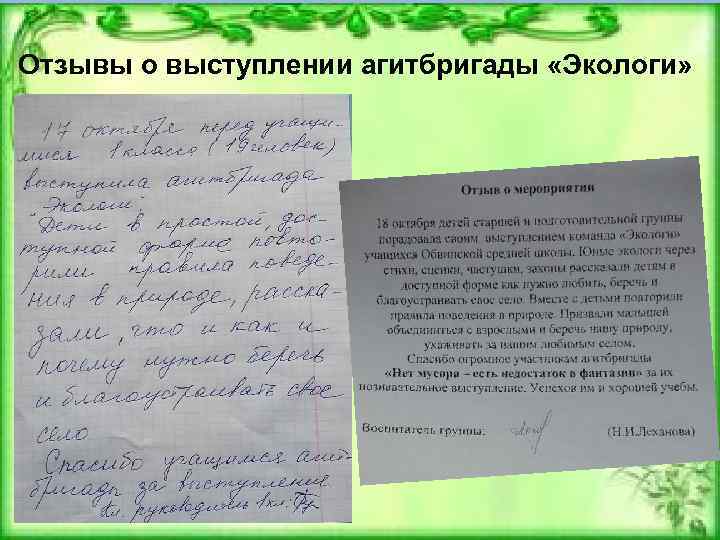 Отзывы о выступлении агитбригады «Экологи»
17 октября перед учащи-
мися 1 класса (19 человек)
выступила агитбригада
"Экологи".
Дети в простой, дос-
тупной форме повто-
рили правила поведе-
ния в природе, расска-
зали, что и как и
почему нужно беречь
и благоустраивать своё
село
Спасибо учащимся агит-
бригады за выступление.
Кл. руководитель 1 кл:
Отзыв о мероприятии
18 октября детей старшей и подготовительной группы
порадовала своим выступлением команда «Экологи»
учащихся Обвинской средней школы. Юные экологи через
стихи, сценки, частушки, законы рассказали детям в
доступной форме как нужно любить, беречь и
благоустраивать свое село. Вместе с детьми повторили
правила поведения в природе. Призвали малышей
объединиться с взрослыми и беречь нашу природу,
ухаживать за нашим любимым селом.
Спасибо огромное участникам агитбригады
«Нет мусора – есть недостаток в фантазии» за их
познавательное выступление. Успехов им и хорошей учебы.
Воспитатель группы: (Н.И.Леханова)